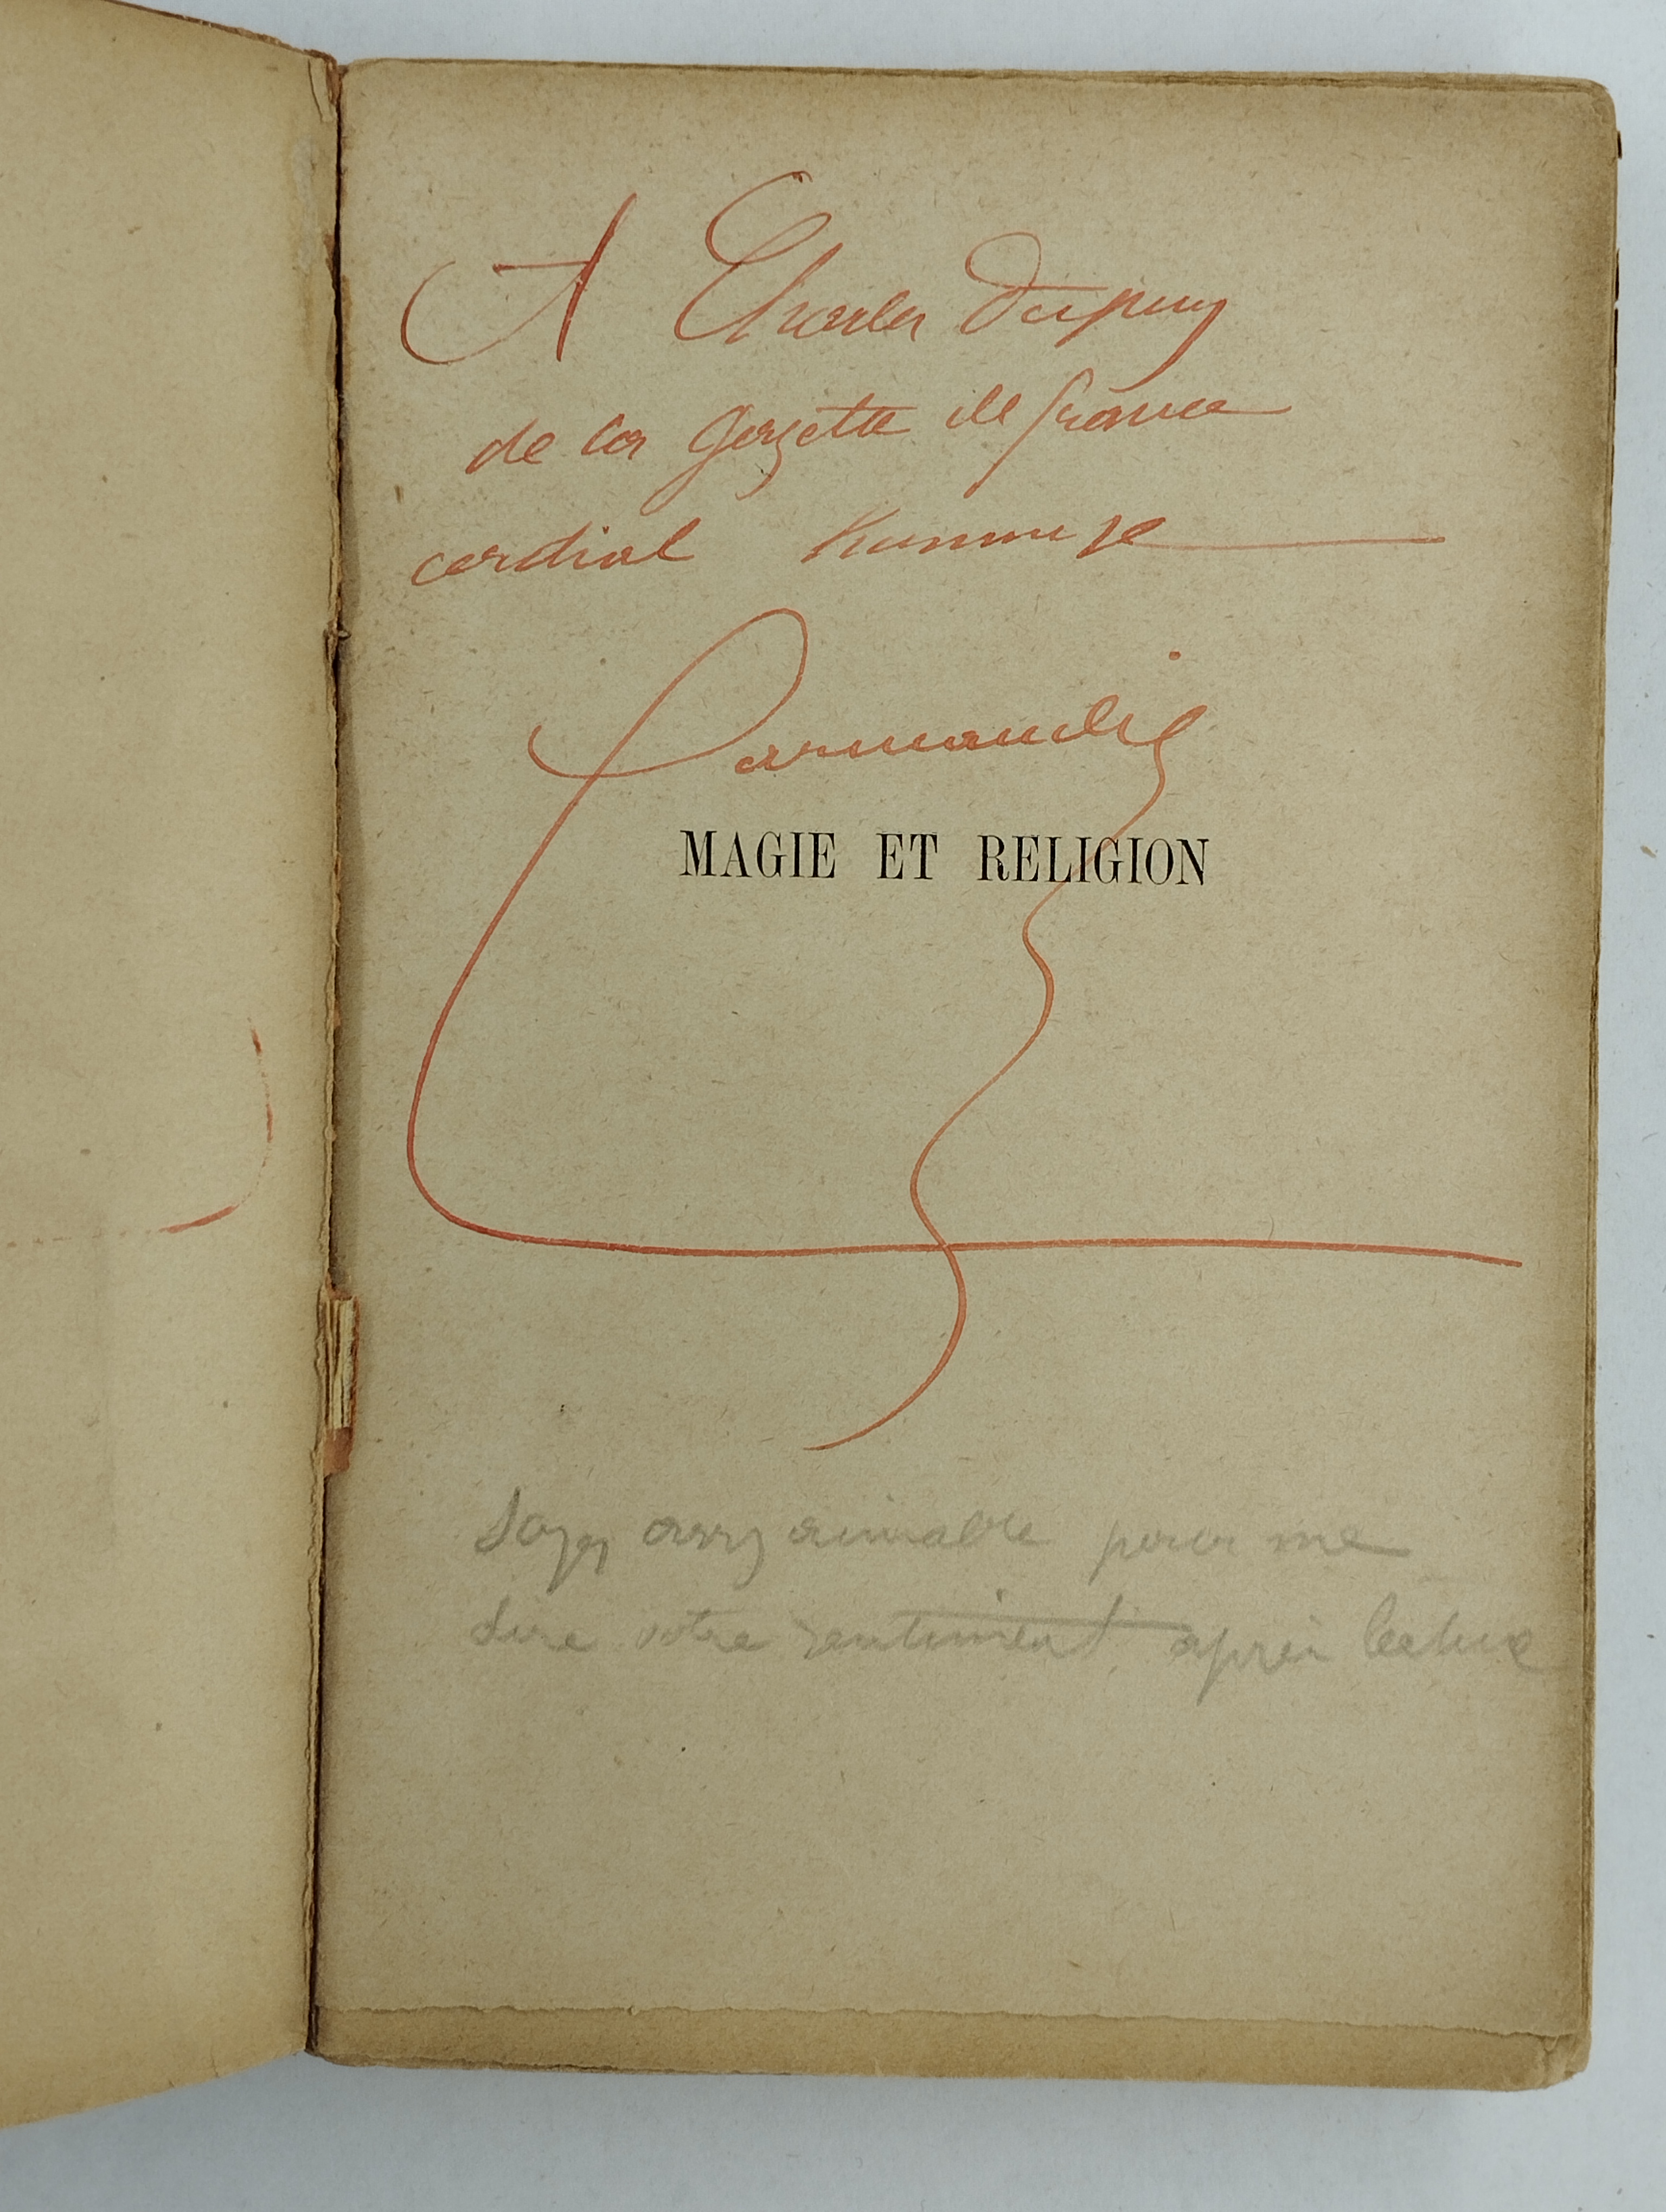 A Charles Dupuy
de la Gazette de france
cordial hommage
Larmandie
MAGIE ET RELIGION
Soyez assez aimable pour me
dire votre sentiment après lecture